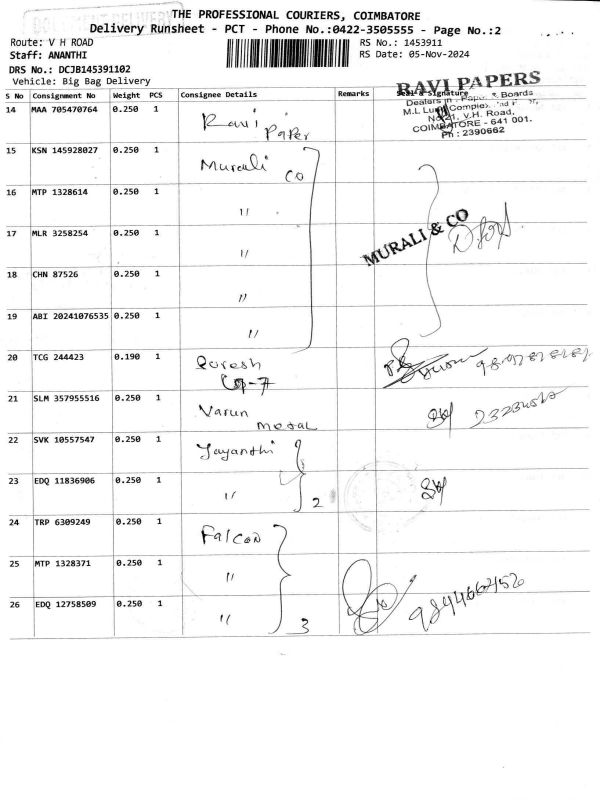 THE PROFESSIONAL COURIERS, COIMBATORE
Delivery Runsheet - PCT - Phone No.:0422-3505555 - Page No.:2
Route: V H ROAD
RS No.: 1453911
Staff: ANANTHI
RS Date: 05-Nov-2024
DRS No.: DCJB145391102
Vehicle: Big Bag Delivery
S No Consignment No Weight PCS Consignee Details Remarks Seal & Signature
RAVI PAPERS
Dealers in Paper & Boards
M.L Complex
V.H. Road,
COIMBATORE - 641 001.
Ph : 2390662
14 MAA 705470764 0.250 1 Ravi Paper
15 KSN 145928027 0.250 1 Murali Co
16 MTP 1328614 0.250 1 "
17 MLR 3258254 0.250 1 "
MURALI & CO
18 CHN 87526 0.250 1 "
19 ABI 20241076535 0.250 1 "
20 TCG 244423 0.190 1 Suresh
21 SLM 357955516 0.250 1 Varun Metal
22 SVK 10557547 0.250 1 Jayanthi
23 EDQ 11836906 0.250 1 " 2
24 TRP 6309249 0.250 1 Falcon
25 MTP 1328371 0.250 1 "
26 EDQ 12758509 0.250 1 " 3
9844666452